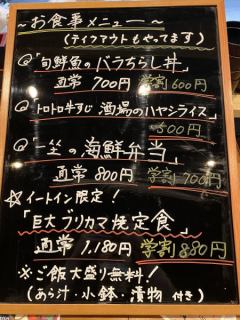 ～お食事メニュー～
(テイクアウトもやってます)
「旬鮮魚のバラちらし丼」
通常 700円 学割 600円
「トロトロ牛すじ 酒場のハヤシライス」
500円
「一坐の海鮮弁当」
通常 800円 学割 700円
☆イートイン限定！
「巨大ブリカマ焼定食」
通常 1,180円 学割 880円
※ご飯大盛り無料！
(あら汁・小鉢・漬物 付き)